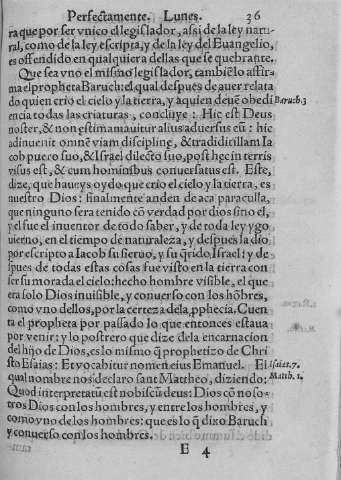 Perfectamente. Lunes. 36
ra que por ser vnico el legislador, assi de la ley natu-
ral, como de la ley escripta, y de la ley del Euangelio,
es offendido en qualquiera dellas que se quebrante.
Que sea vno el mismo legislador, tambiẽ lo affir-
ma el propheta Baruch: el qual despues de auer relata
do quien crio el cielo y la tierra, y a quien deuẽ obedi
Baruch.3
encia todas las criaturas, concluye: Hic est Deus
noster, & non estimamauitur alius aduersus eũ: hic
adinuenit omnẽ viam disciplinę, & tradidit illam Ia
cob puero suo, & Israel dilecto suo, post hęc in terris
visus est, & cum hominibus conuersatus est. Este,
dize, que haueys oydo que crio el cielo y la tierra, es
nuestro Dios: finalmente anden de aca para culla,
que ninguno sera tenido cõ verdad por dios sino el,
y el fue el inuentor de todo saber, y de toda ley y go
uierno, en el tiempo de naturaleza, y despues la dio
por escripto a Iacob su sieruo, y su q̃rido Israel: y de
spues de todas estas cosas fue visto en la tierra con
ser su morada el cielo: hecho hombre visible, el que
era solo Dios inuisible, y conuerso con los hõbres,
como vno dellos, por la certeza de la pphecia. Cuen
ta el propheta por passado lo que entonces estaua
por venir: y lo postrero que dize de la encarnacion
del hijo de Dios, es lo mismo q̃ prophetizo de Chri
sto Esaias: Et vocabitur nomen eius Emanuel. El
Isaiæ.7.
qual nombre nos declaro sant Mattheo, diziendo:
Matth. 1.
Quod interpretatũ est nobiscũ deus: Dios cõ noso-
tros Dios con los hombres, y entre los hombres, y
como vno de los hombres: que es lo q̃ dixo Baruch
y conuerso con los hombres.
E 4